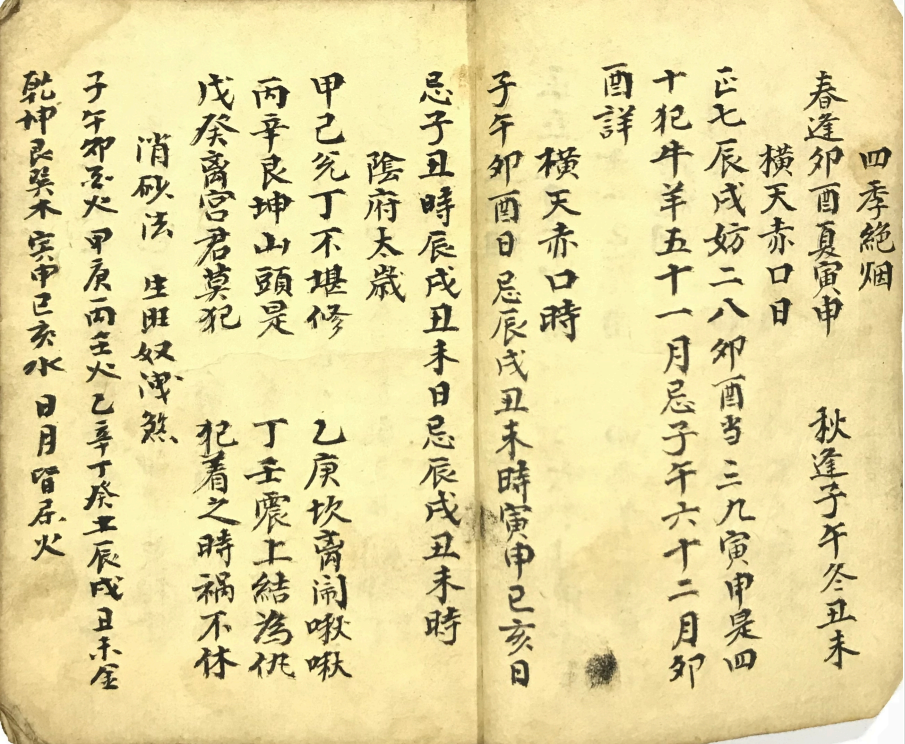 四季絶烟
春逢卯酉夏寅申 秋逢子午冬丑未
橫天赤口日
正七辰戌妨二八卯酉当三九寅申是四
十犯牛羊五十一月忌子午六十二月卯
酉詳
橫天赤口時
子午卯酉日忌辰戌丑未時寅申巳亥日
忌子丑時辰戌丑未日忌辰戌丑未時
陰府太歲
甲己兊丁不堪修 乙庚坎离閙啾啾
丙辛艮坤山頭是 丁壬震上結為仇
戊癸离宮君莫犯 犯着之時禍不休
消砂法 生旺奴洩煞
子午卯酉火甲庚丙壬火乙辛丁癸土辰戌丑未金
乾坤艮巽木寅申巳亥水 日月皆屬火